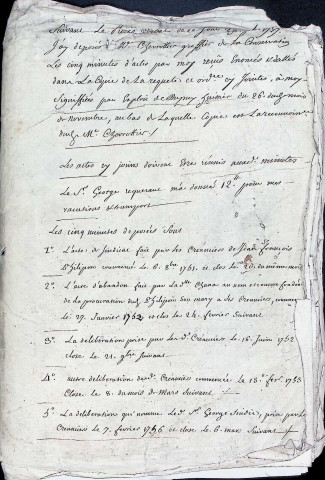 Suivant Le Procès verbal de ce jour 1757
J'ay deposé à Mr Chevrottier greffier de la Conservation
Les cinq minutes d'actes par moy reçus Enoncés & dattés
dans La Copie de La requete, & ordre cy Jointes, à moy
Signiffiées par Exploit de Dupuy huissier du 26e dudt mois
de Novembre, au bas de Laquelle Copie est La reconnoissance
dudt Mr Chevrottier /
Les actes cy joints doivent Etre reunis auxd. minutes
Le Sr. George requerant m'a donné 12# pour mes
vacations & transport
Les cinq minutes deposées Sont
1°. L'acte de Sindicat fait par les Creanciers de Jean François
Philipon commencé le 6. 8bre 1751. & clos le 20. du meme mois
2°. L'acte d'abandon fait par La Dlle au nom et comme fondée
de la procuration dudt Philipon son mary a ses Creanciers, commencé
le 29. Janvier 1752 et clos le 24. fevrier Suivant
3°. La deliberation prise par lesd. Creanciers le 16. Juin 1752
close le 21. 9bre Suivant.
4°. autre deliberation desd. Creanciers commencée le 13. fer. 1753
Close le 8. du mois de Mars Suivant
5°. La deliberation qui nomme Led. Sr. George Sindic, prise par les
Creanciers le 7. fevrier 1756 & close le 6. mars Suivant